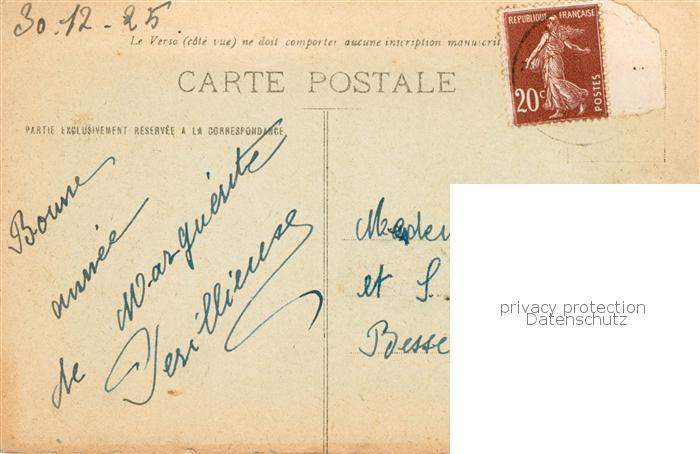 30.12-25.
Le Verso (côté vue) ne doit comporter aucune inscription manuscrit
REPUBLIQUE FRANÇAISE
20c
POSTES
CARTE POSTALE
PARTIE EXCLUSIVEMENT RÉSERVÉE A LA CORRESPONDANCE
Bonne
année
de Marguérite
et S.
Besse
privacy protection
Datenschutz